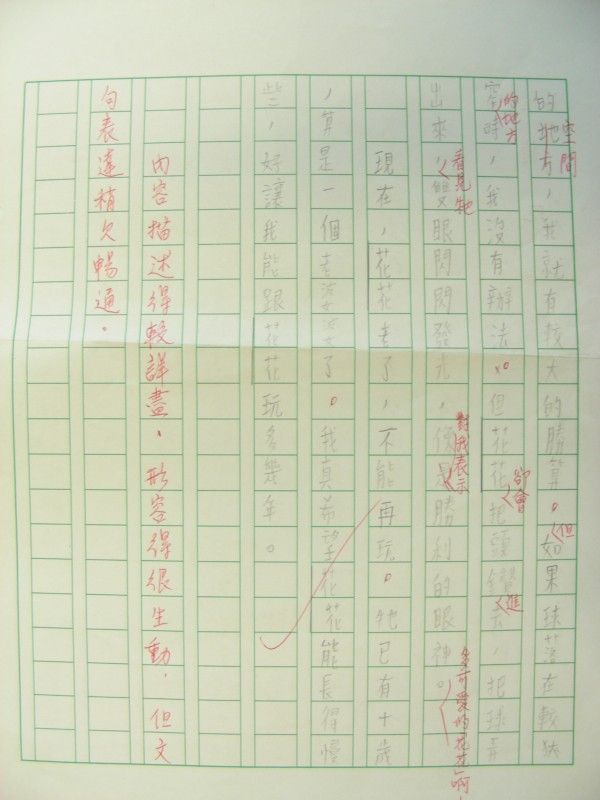 的地方，我就有較大的勝算。如果球落在較狹
空間
但
窄時，我沒有辦法。但花花把頭鑽去，把球弄
的地方
卻會
進
出來，雙眼閃閃發光，像是勝利的眼神。
看見牠
對我表示
多可愛的花花啊
現在，花花老了，不能再玩。牠已有十歲
，算是一個老婆婆了。我真希望花花能長得慢
些，好讓我能跟花花玩多幾年。
內容描述得較詳盡，形容得很生動，但文
句表達稍欠暢通。